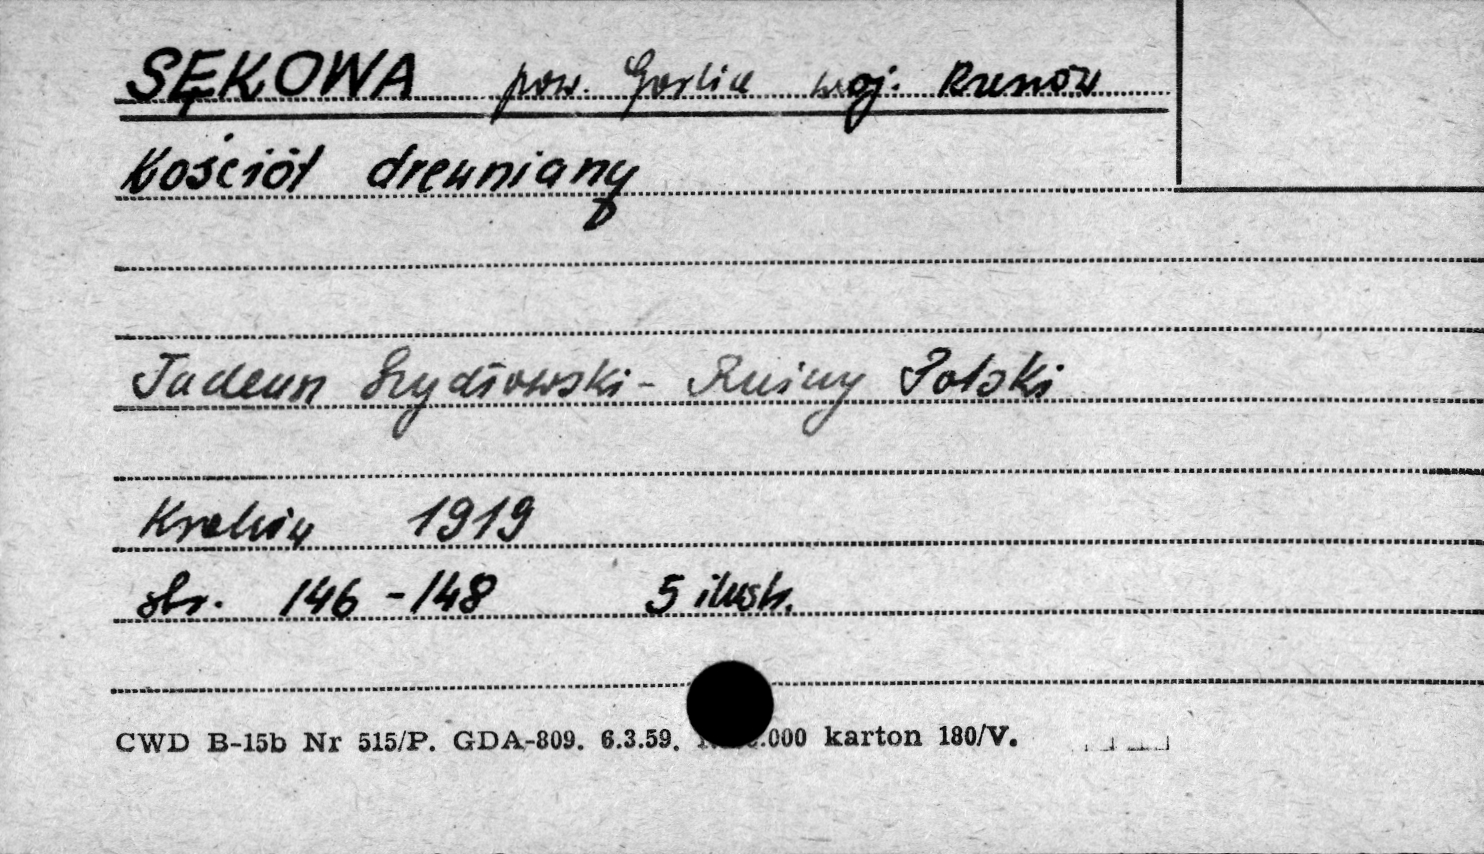 SĘKOWA pow. Gorlice woj. Rzeszów
Kościół drewniany
Tadeusz Szydłowski - Ruiny Polski
Kraków 1919
str. 146-148 5 ilustr.
CWD B-15b Nr 515/P. GDA-809. 6.3.59. .000 karton 180/V.